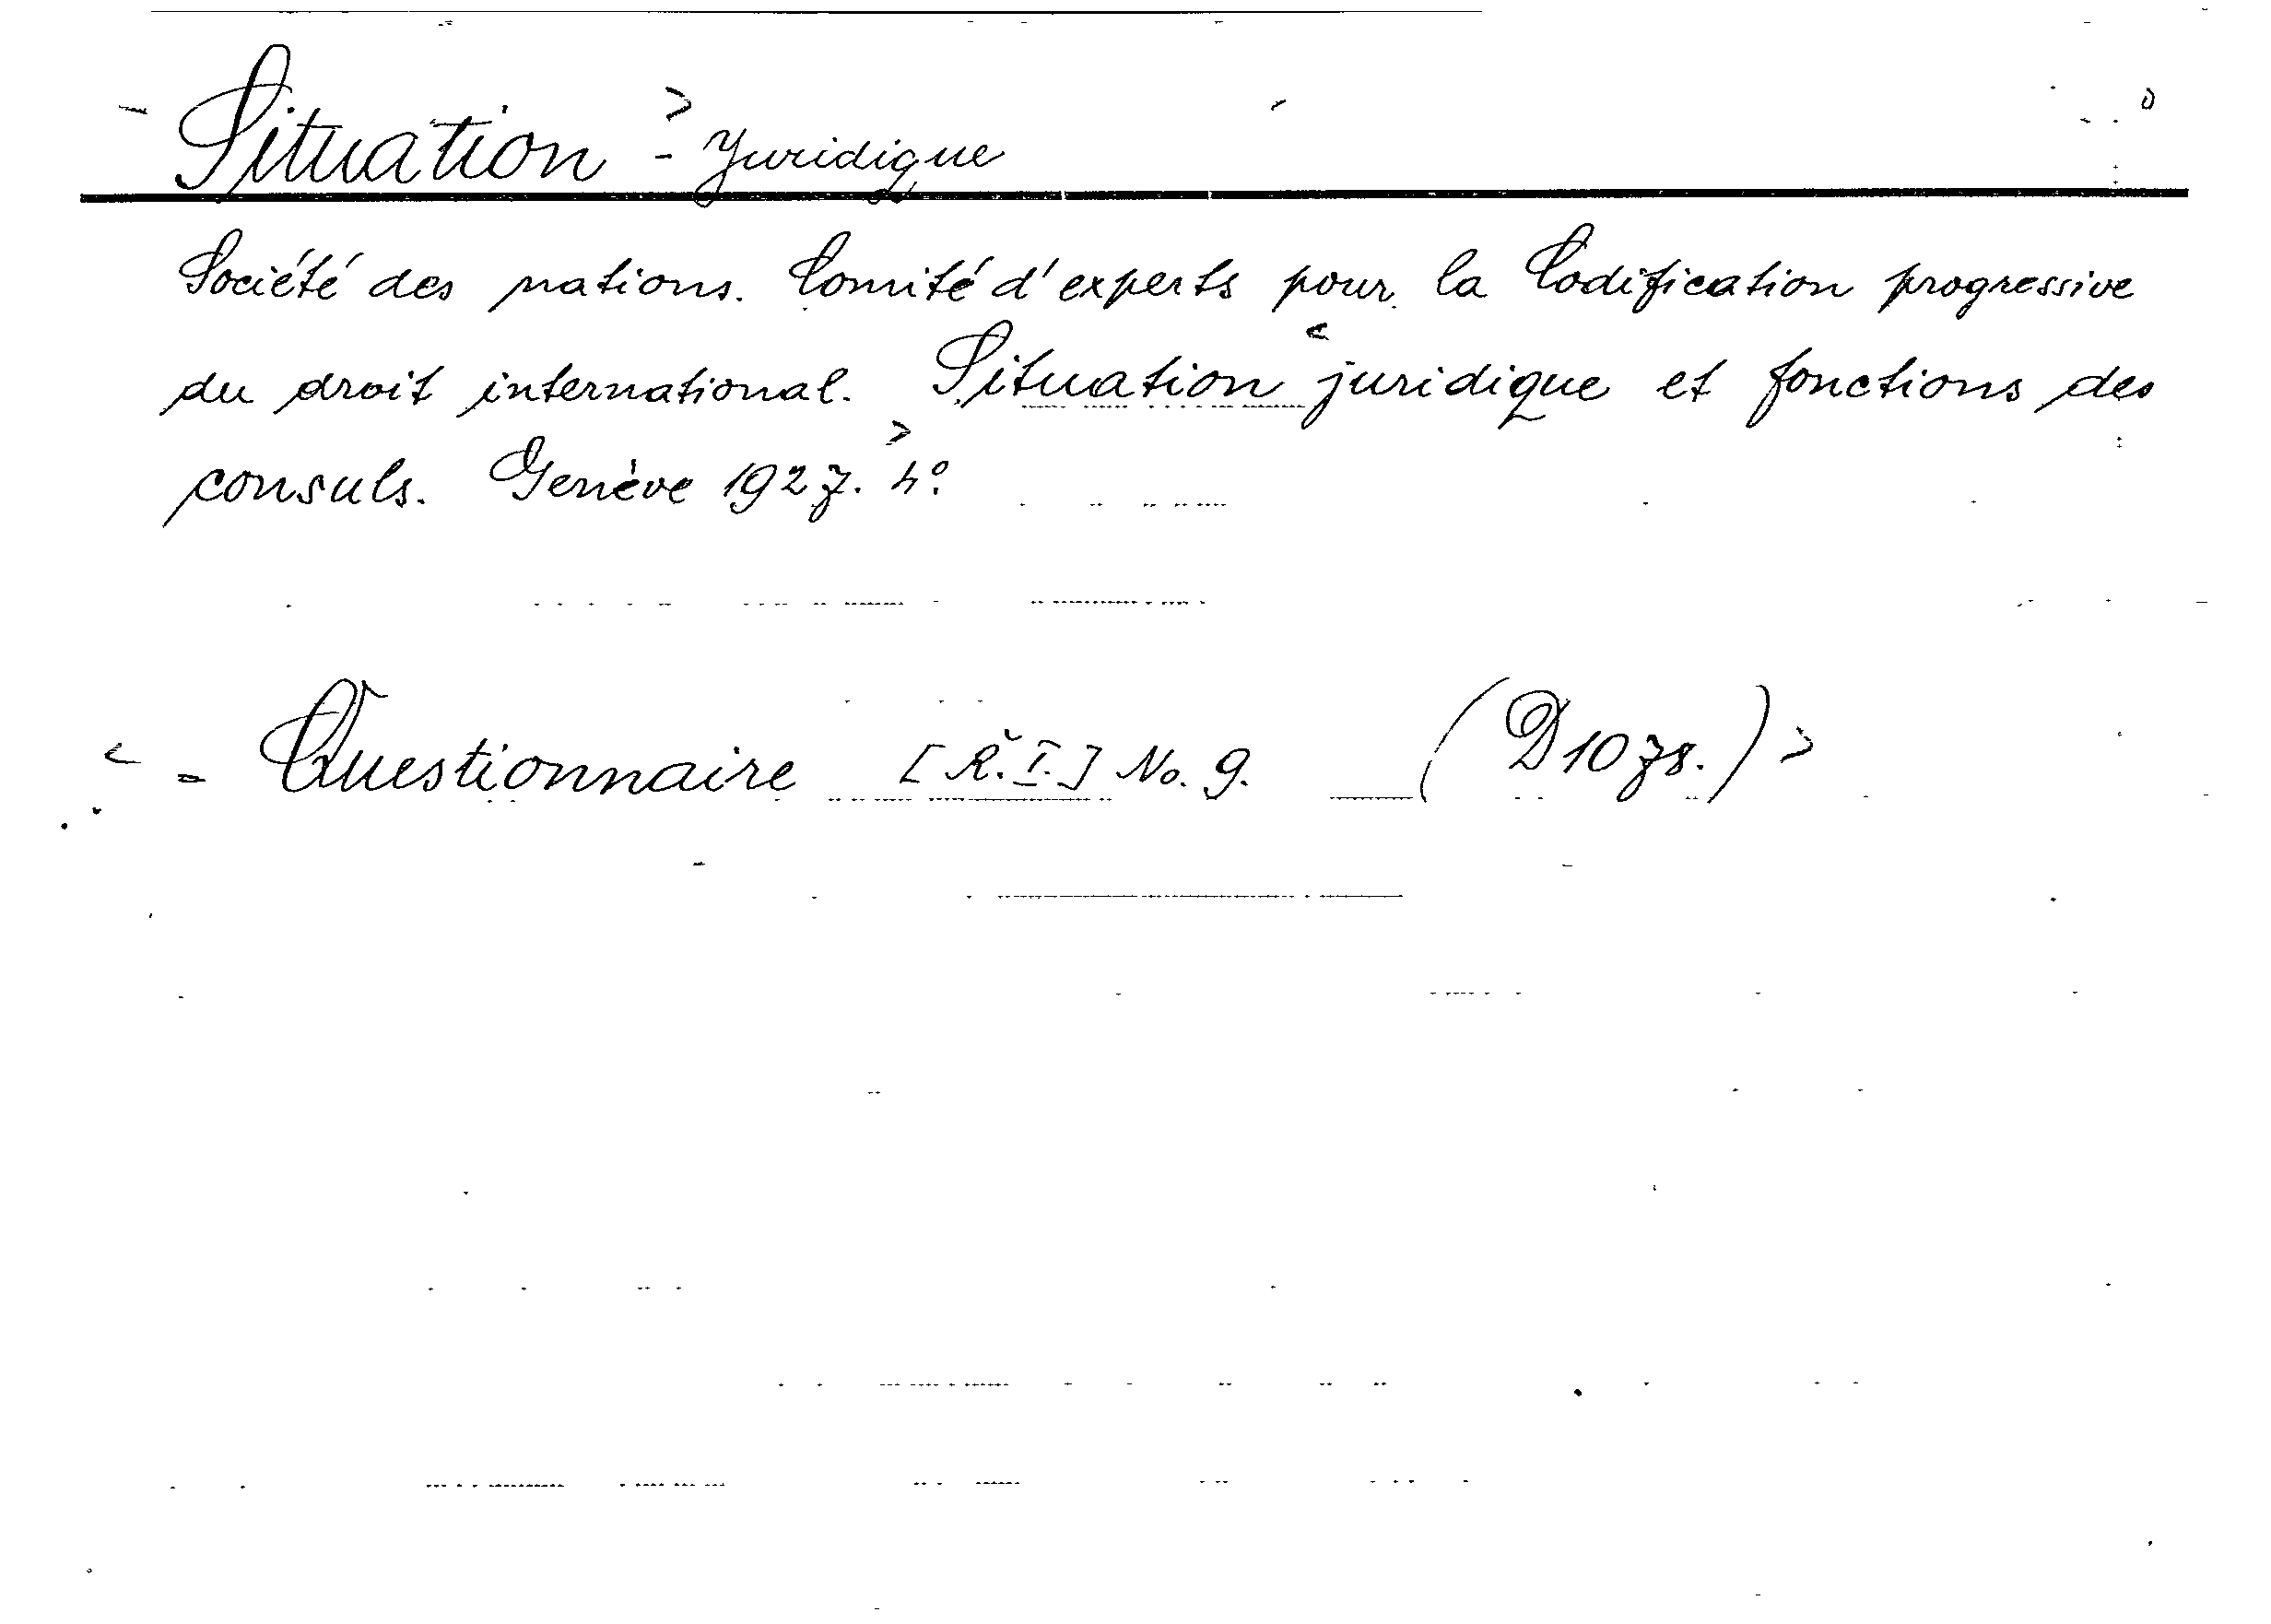 Situation - Juridique
Société des nations. Comité d'experts pour la Codification progressive
du droit international. Situation juridique et fonctions des
consuls. Genève 1927. 4°.
- Questionnaire [R. I.] No. 9. (D 1078.)